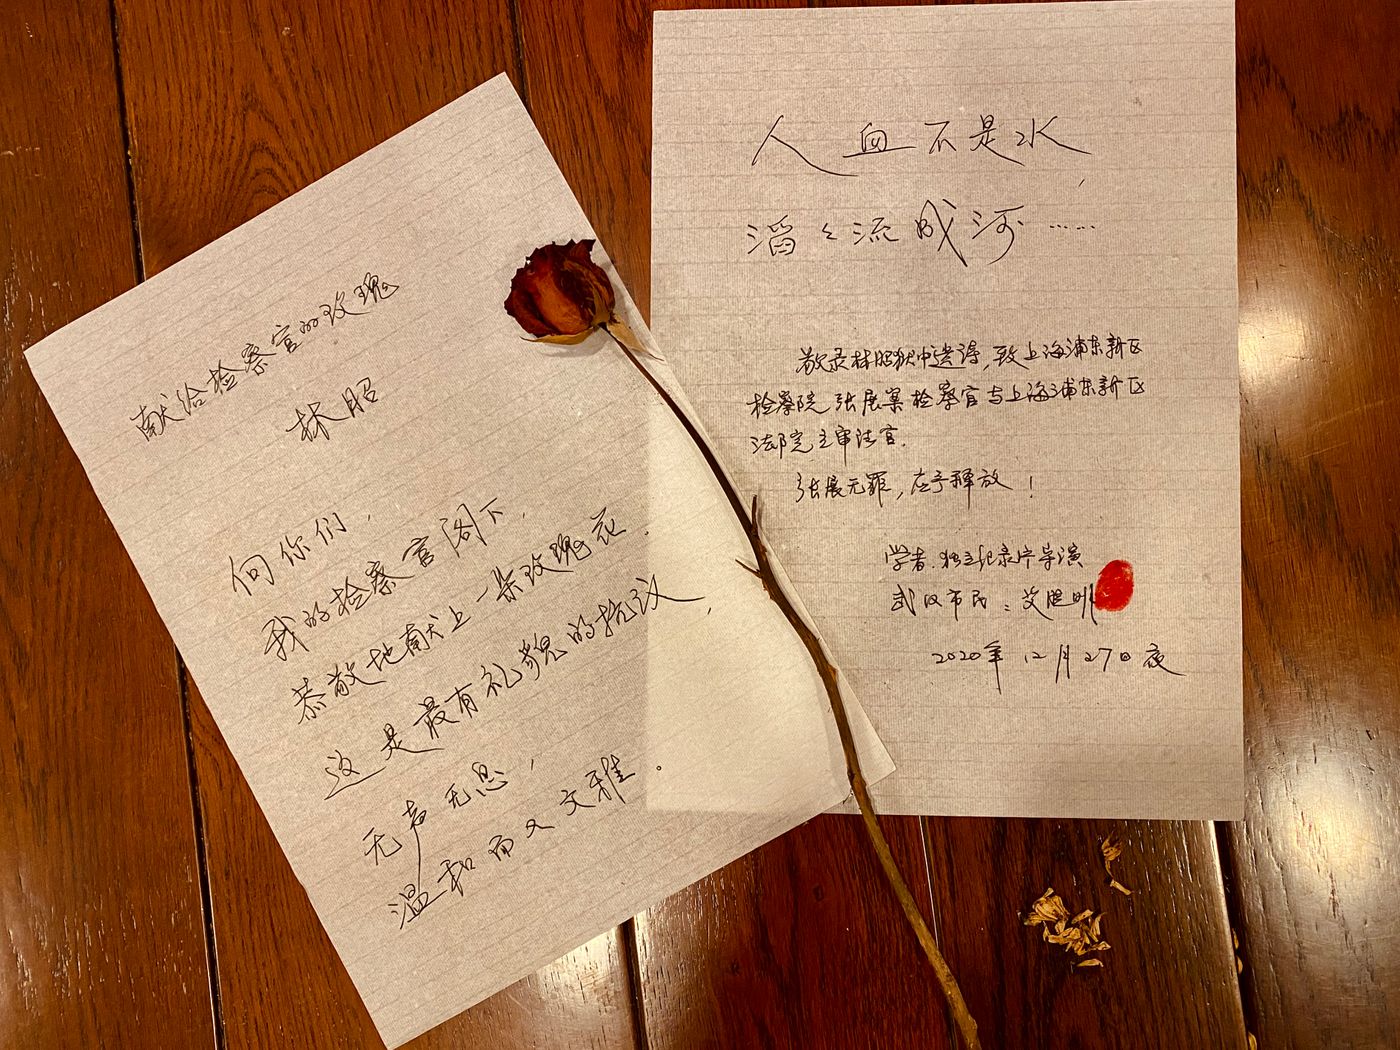 献给检察官的玫瑰
林昭
向你们，
我的检察官阁下，
恭敬地献上一朵玫瑰花．
这是最有礼貌的抗议，
无声无息，
温和而又文雅。
人血不是水，
滔々流成河……
敬录林昭狱中遗诗，致上海浦东新区
检察院张展案检察官与上海浦东新区
法院主审法官．
张展无罪，应予释放！
学者．独立纪录片导演
武汉市民：艾晓明
2020年12月27日夜